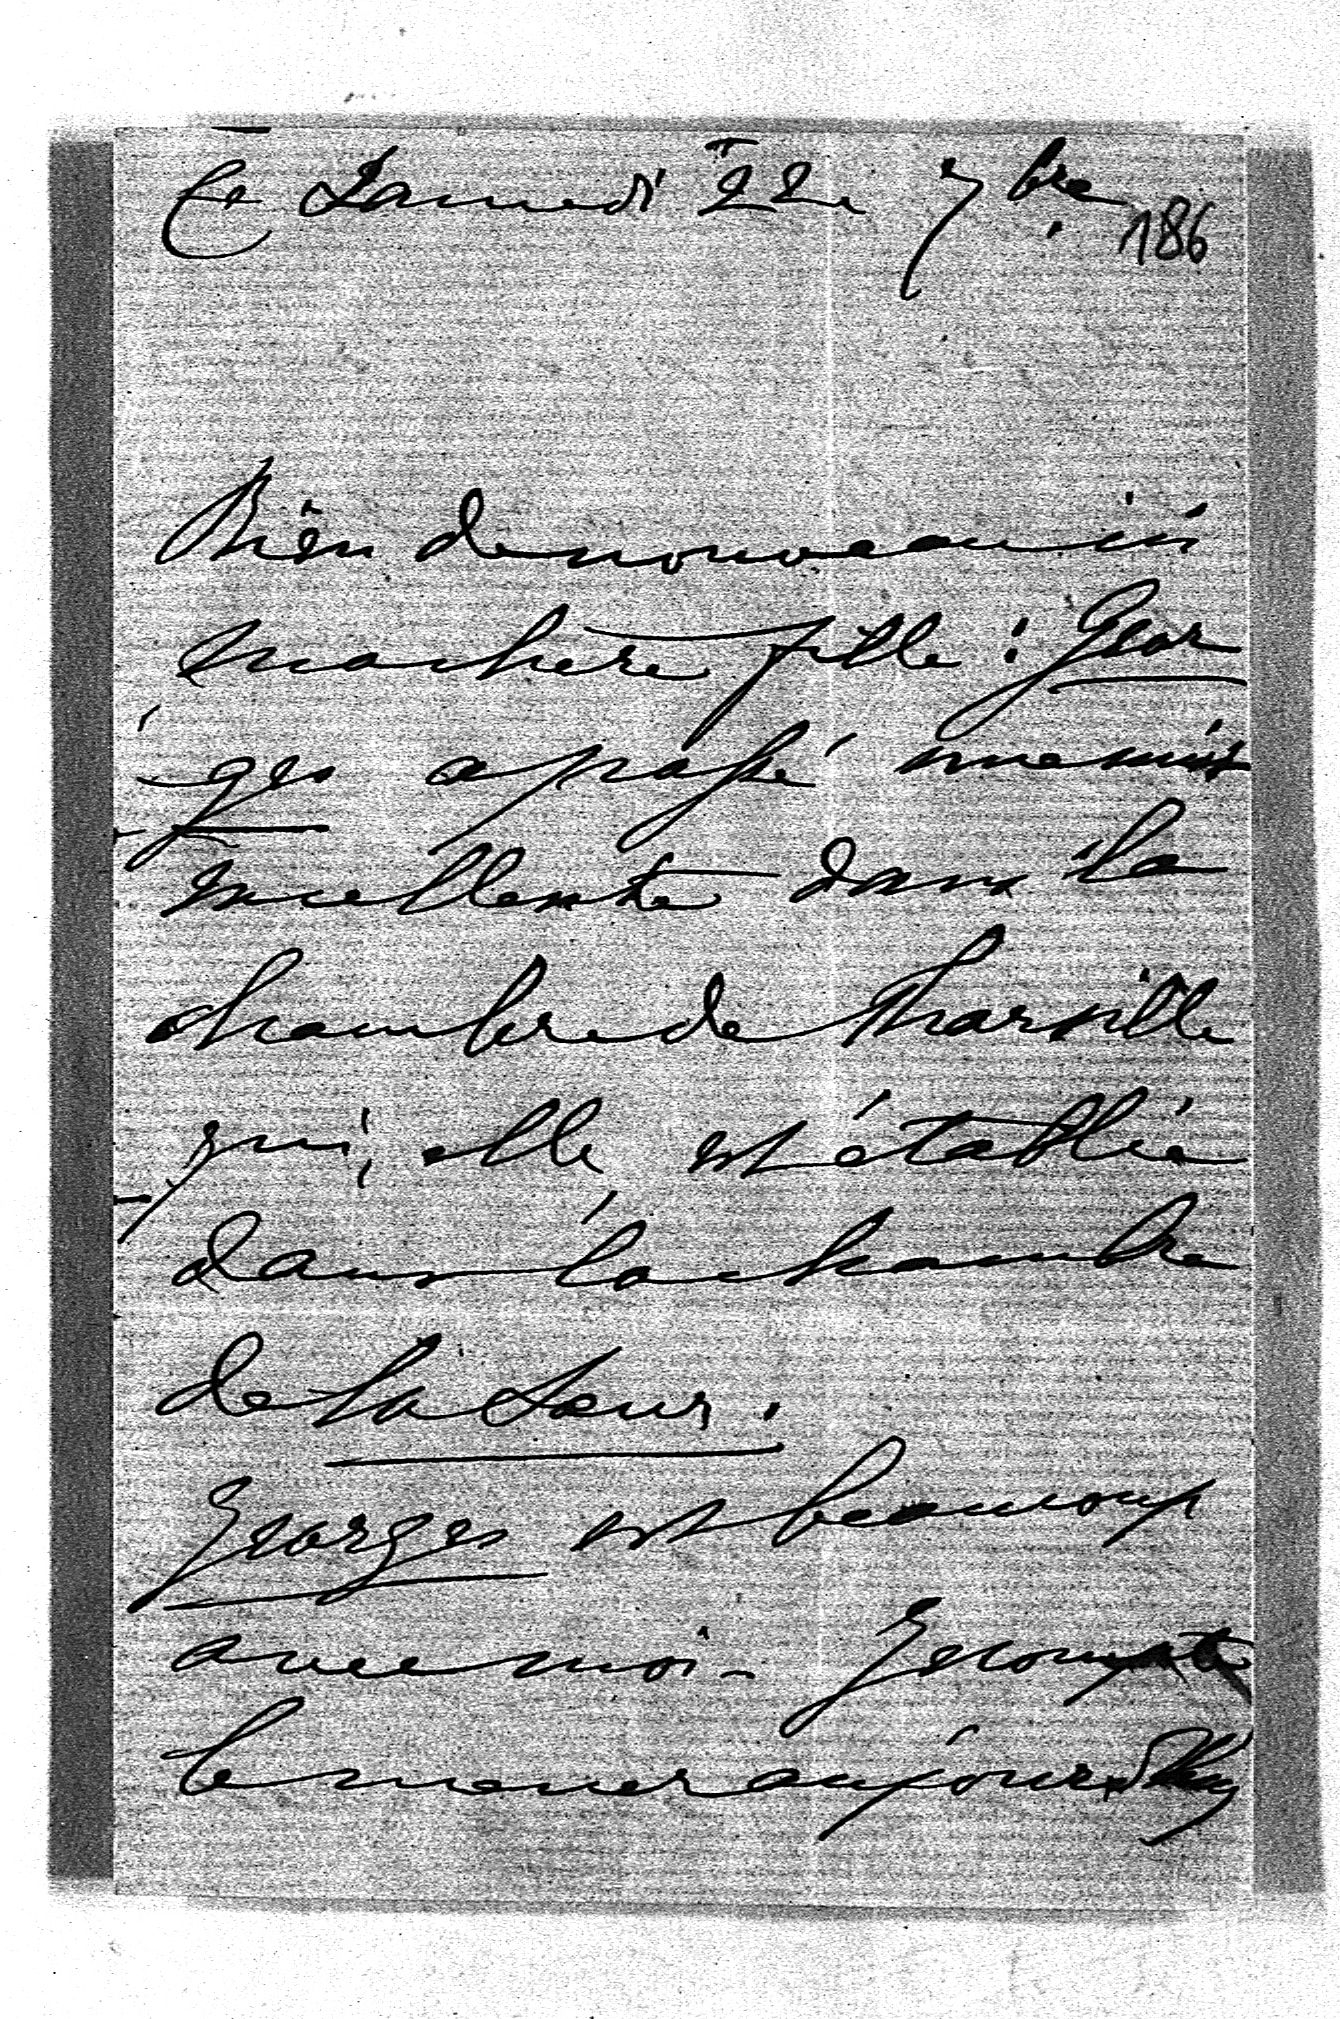 Ce Samedi 22 7bre
186
Rien de nouveau ici
ma chère fille : Geor
ges a passé une nuit
excellente dans la
chambre de Tharsille
qui, elle, est établie
dans la chambre
de la Sœur.
Georges est beaucoup
avec moi –
le mener aujourd'huy